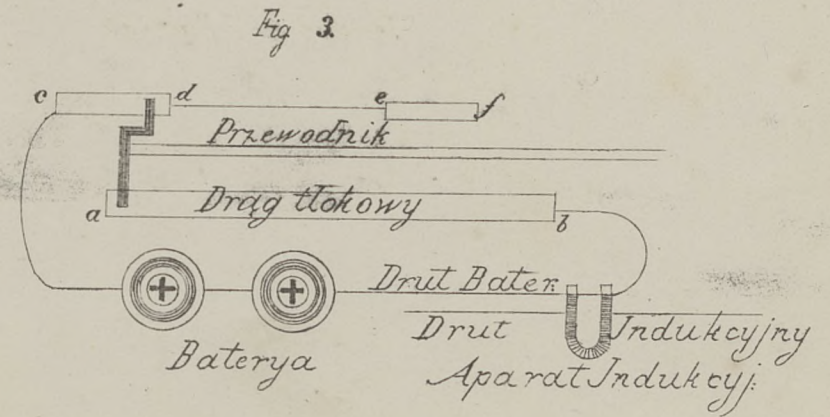 Fig 3.
c d e f
Przewodnik
a Drąg tłokowy b
Drut Bater.
Drut Indukcyjny
Baterya
Aparat Indukcyj: